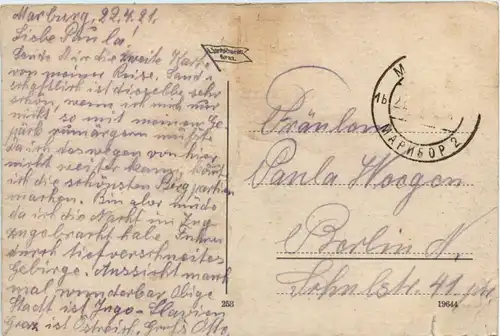 Marburg, 22.4.21.
Liebe Paula!
Sende Dir die zweite Karte
von meiner Reise. Land-
schaftlich ist dieselbe sehr
schön, wenn ich mich nur
nicht so mit meinem Ge-
päck rumärgern müßte
da ich deswegen von hier
nicht weiter kann, könnt
ich die schönsten Bergpartien
machen. Bin aber müde
da ich die Nacht im Zug
zugebracht habe. Fuhren
durch tiefverschneites
Gebirge. Aussicht manch
mal wunderbar. Obige
Stadt ist Jugo-Slavien
Graz ist Östreich. Gruß Otto
M
16
МАРИБОР 2
Fräulein
Paula Woogen
Berlin N.
Schulstr. 41
258
19644